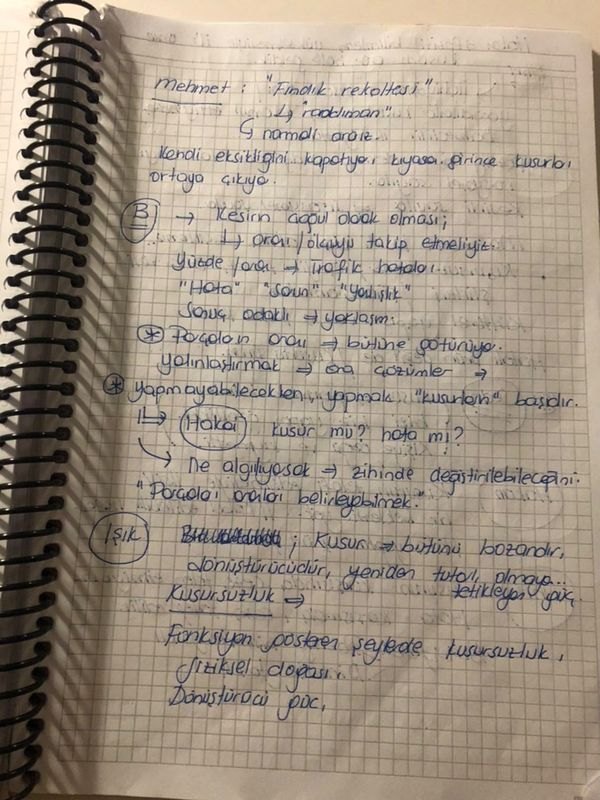 Mehmet : "Fındık rekoltesi"
↳ "randıman"
↳ normali
Kendi eksikliğini kapatıyor, kıyasa girince kusurları
ortaya çıkıyor.
B → Kesirin çoğul olarak olması;
↳ oran / ölçüyü takip etmeliyiz.
Yüzde / oran → Trafik hataları
"Hata" "Sorun" "Yanlışlık"
Sonuç odaklı → yaklaşım.
* Parçaların oranı → bütüne götürüyor.
yalınlaştırmak → ara çözümler →
* yapmayabilecekken yapmak "kusurların" başıdır.
↳ Hakai kusur mu? hata mı?
→ Ne algılıyorsak → zihinde değiştirilebileceğini.
"Parçaları oranları belirleyebilmek."
Işık ; Kusur → bütünü bozandır,
dönüştürücüdür, yeniden tutar, olmaya...
Kusursuzluk → tetikleyen güç.
Fonksiyon gösteren şeylerde kusursuzluk,
fiziksel doğası,
Dönüştürücü güç,